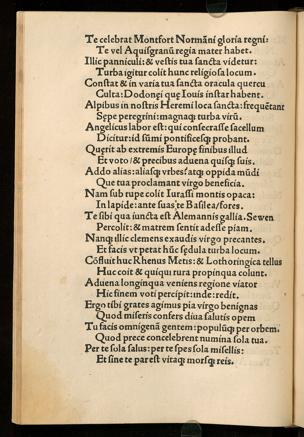 Te celebrat Montfort Normāni gloria regni:
Te vel Aquisgranū regia mater habet.
Illic panniculi: & vestis tua sancta videtur:
Turba igitur colit hunc religiosa locum.
Constat & in varia tua sancta oracula quercu
Culta: Dodonei que Iouis instar habent.
Alpibus in nostris Heremi loca sancta: frequētant
Sepe peregrini: magnaqȝ turba virū.
Angelicus labor est: qui consecrasse sacellum
Dicitur: id sūmi pontificesqȝ probant.
Querit ab extremis Europe finibus illud
Et voto: & precibus aduena quisqȝ suis.
Addo alias: aliasqȝ vrbes: atqȝ oppida mūdi
Que tua proclamant virgo beneficia.
Nam sub rupe colit Iurassi montis opaca:
In lapide: ante suas te Basilea fores.
Te sibi qua iuncta est Alemannis gallia. Sewen
Percolit: & matrem sentit adesse piam.
Nanqȝ illic clemens exaudis virgo precantes.
Et facis vt petat hūc sedula turba locum.
Cōfluit huc Rhenus Metis: & Lothoringica tellus
Huc coit & quiqui rura propinqua colunt.
Aduena longinqua veniens regione viator
Hic finem voti percipit: inde: redit.
Ergo tibi grates agimus pia virgo benignas
Quod miseris confers diua salutis opem
Tu facis omnigenā gentem: populūqȝ per orbem.
Quod prece concelebrent numina sola tua.
Per te sola salus: per te spes sola misellis:
Et sine te par est vitaqȝ morsqȝ reis.